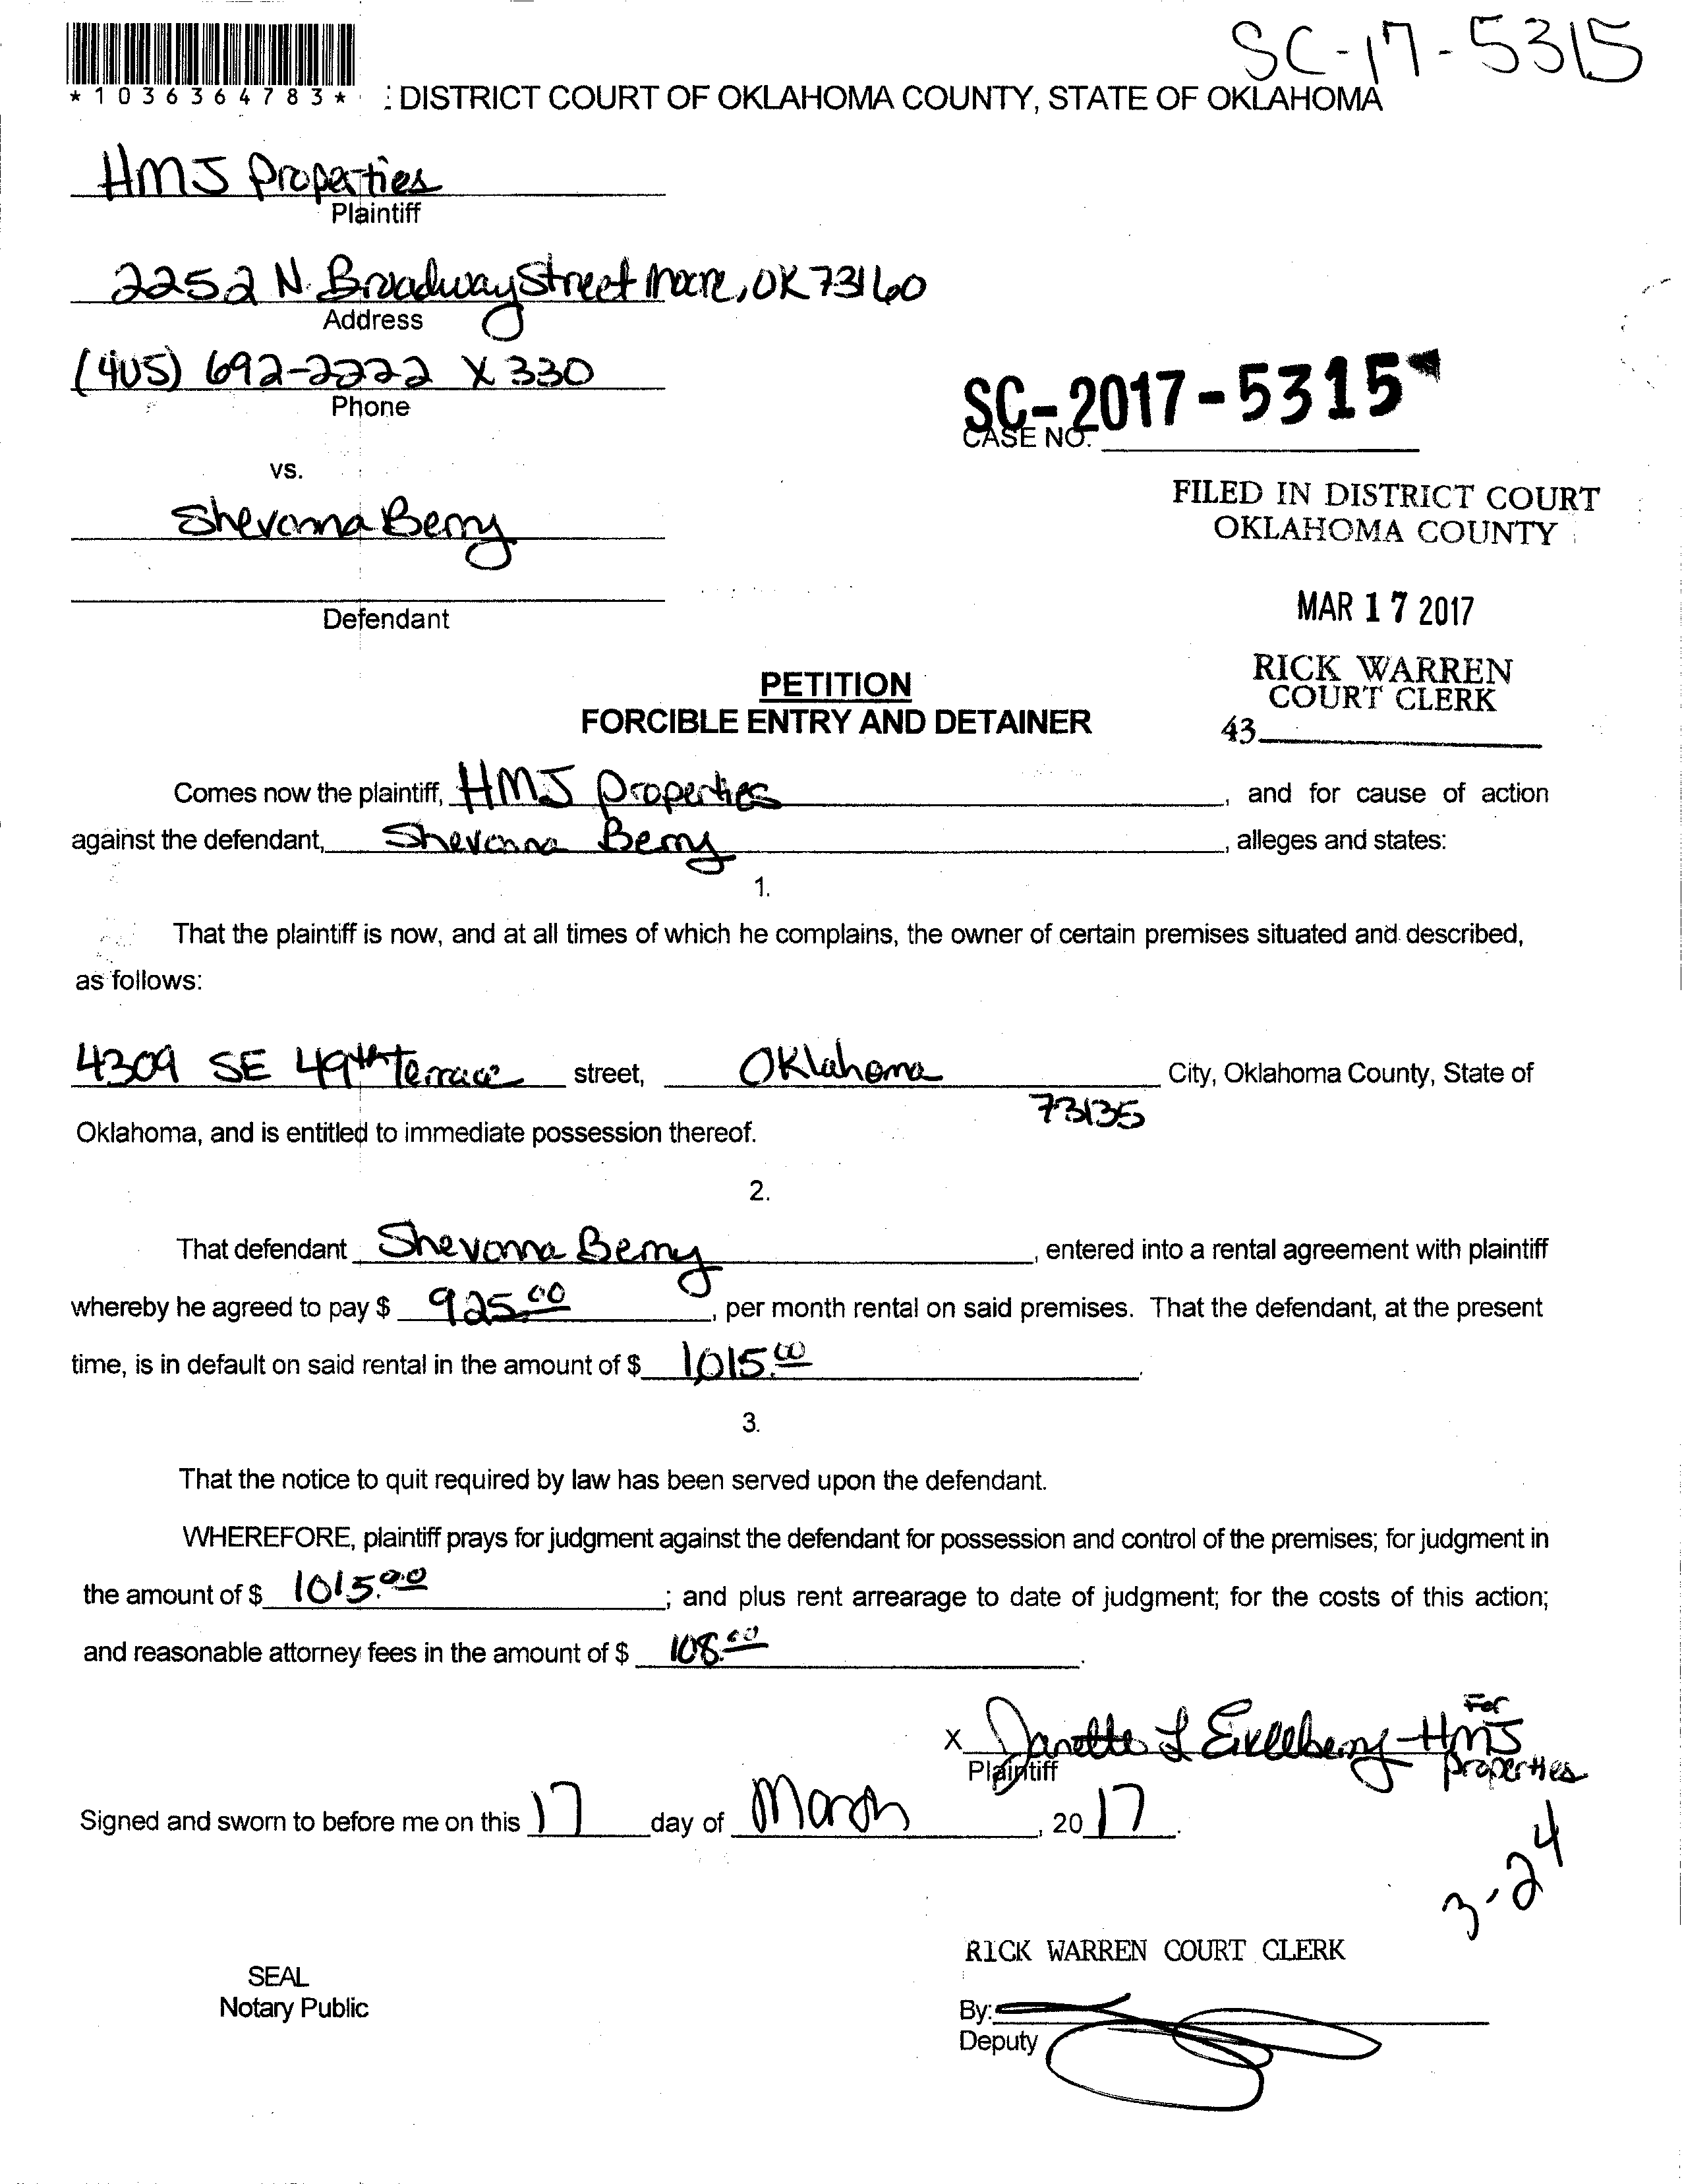 SC-17-5315
*1036364783*
: DISTRICT COURT OF OKLAHOMA COUNTY, STATE OF OKLAHOMA
HMJ Properties
Plaintiff
2252 N. Broadway Street Moore, OK 73160
Address
(405) 692-2222 X 330
Phone
SC-2017-5315
CASE NO.
vs.
Shevonna Berry
FILED IN DISTRICT COURT
OKLAHOMA COUNTY
Defendant
MAR 17 2017
RICK WARREN
COURT CLERK
43
PETITION
FORCIBLE ENTRY AND DETAINER
Comes now the plaintiff, HMJ Properties, and for cause of action
against the defendant, Shevonna Berry, alleges and states:
1.
That the plaintiff is now, and at all times of which he complains, the owner of certain premises situated and described,
as follows:
4309 SE 49th Terrace street, Oklahoma City, Oklahoma County, State of
73135
Oklahoma, and is entitled to immediate possession thereof.
2.
That defendant Shevonna Berry, entered into a rental agreement with plaintiff
whereby he agreed to pay $ 925.00, per month rental on said premises. That the defendant, at the present
time, is in default on said rental in the amount of $ 1,015.00.
3.
That the notice to quit required by law has been served upon the defendant.
WHEREFORE, plaintiff prays for judgment against the defendant for possession and control of the premises; for judgment in
the amount of $ 1015.00; and plus rent arrearage to date of judgment; for the costs of this action;
and reasonable attorney fees in the amount of $ 108.00.
X Janette L For HMJ Properties
Plaintiff
Signed and sworn to before me on this 17 day of March, 2017.
3-24
RICK WARREN COURT CLERK
SEAL
Notary Public
By:
Deputy